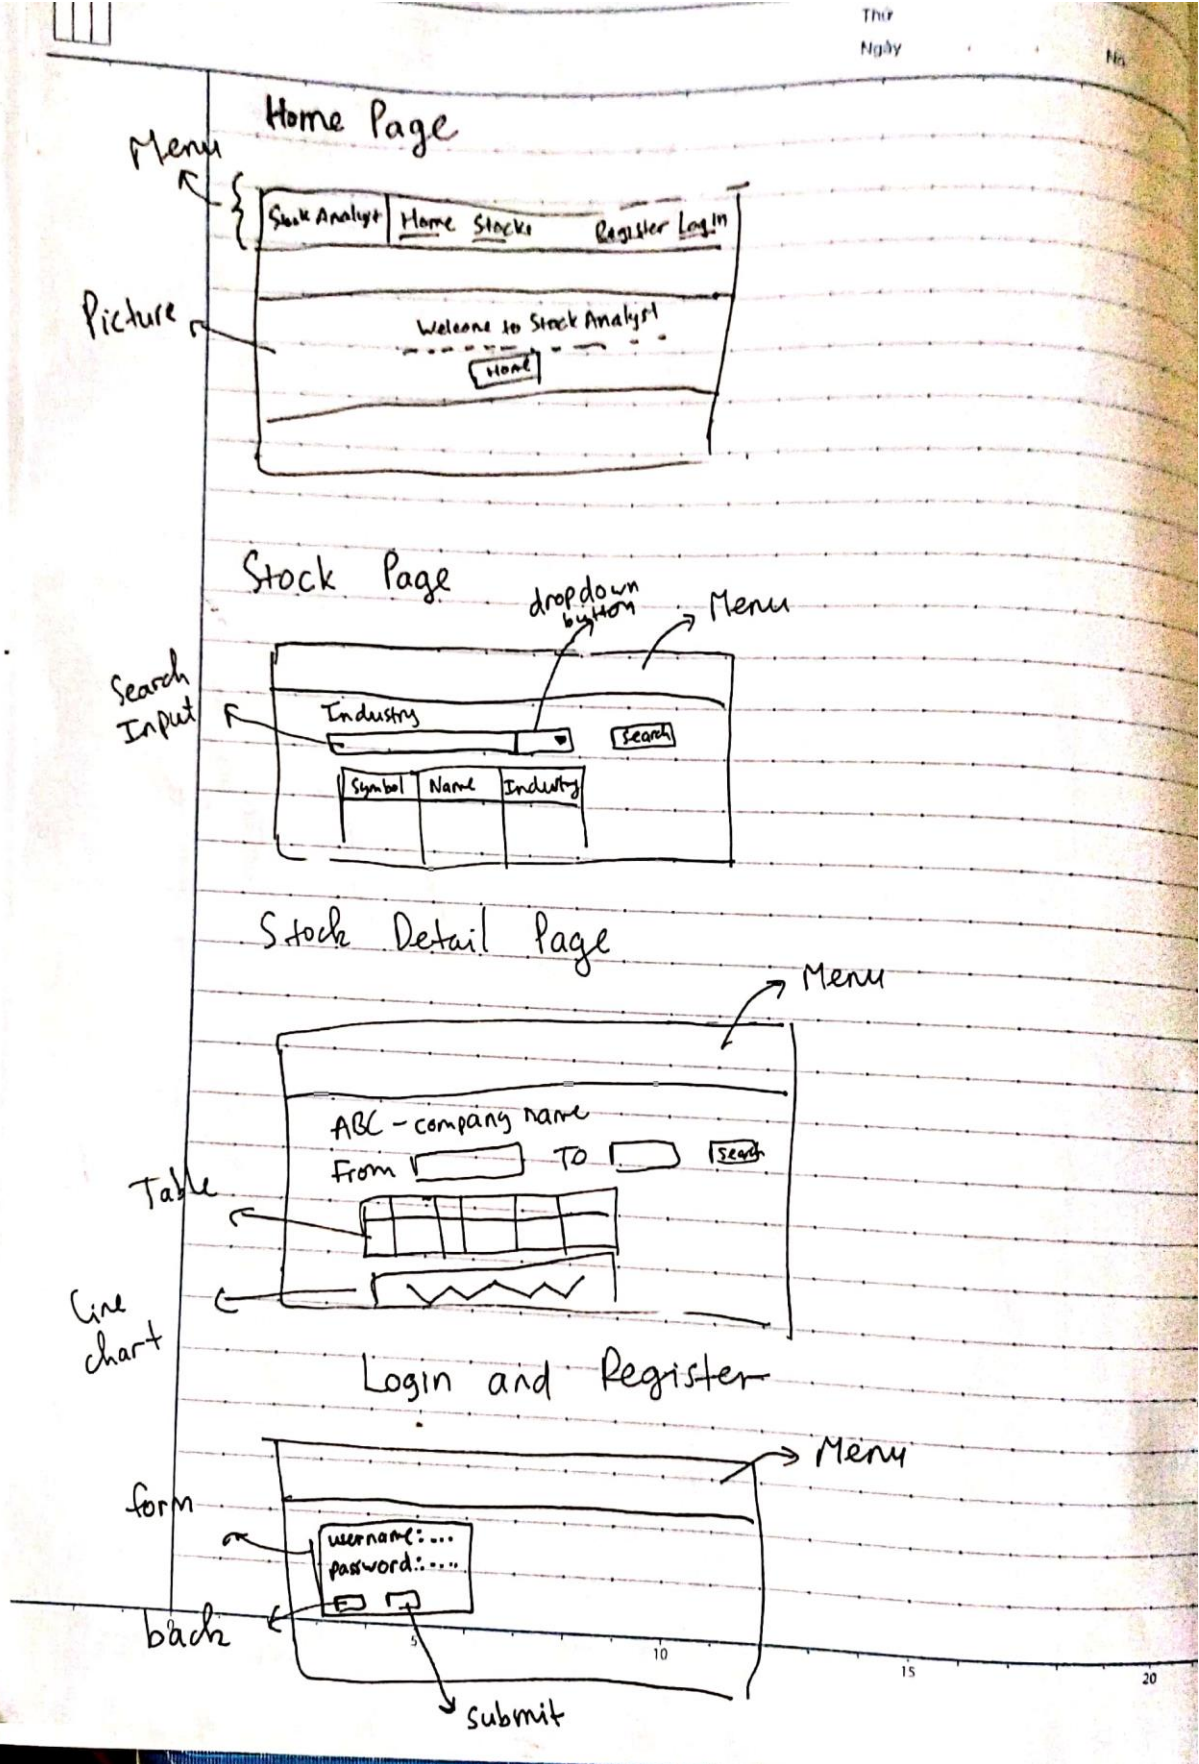 Thứ
Ngày
Home Page
Menu
Stock Analyst Home Stocks Register Login
Picture
Welcome to Stock Analyst
Home
Stock Page
dropdown
button
Menu
Search
Input
Industry
Search
Symbol Name Industry
Stock Detail Page
Menu
ABC - company name
From TO Search
Table
Line
chart
Login and Register
Menu
form
username: ...
password: ....
back
5 10 15 20
submit